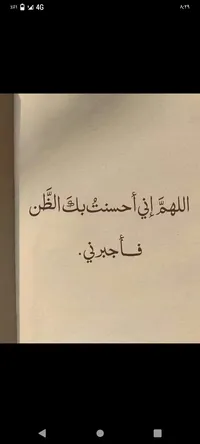 ٤٦٪ 4G ٨:٢٩
اللهمَّ إني أحسنتُ بكَ الظَّن
فـأجبرني.